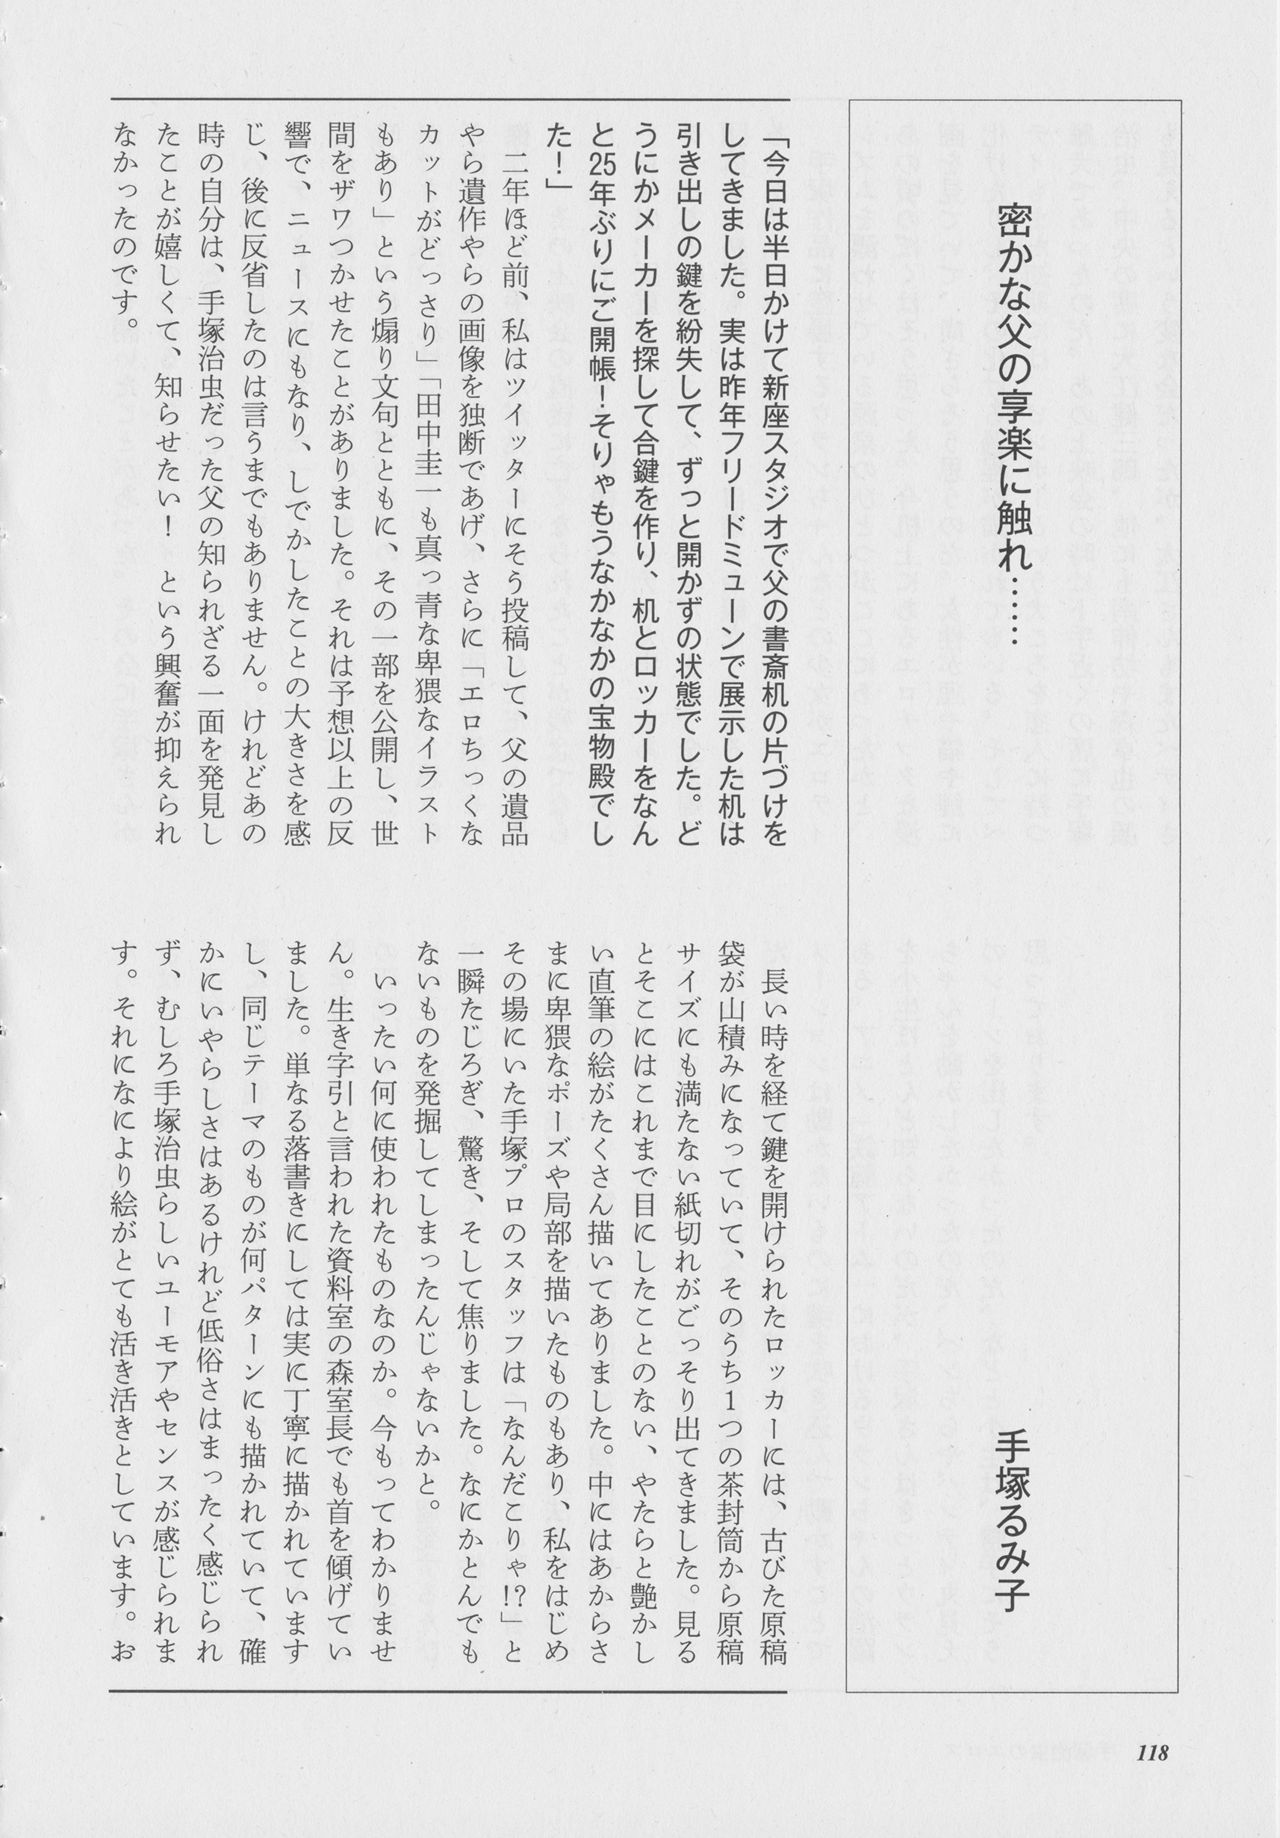 密かな父の享楽に触れ……
手塚るみ子
「今日は半日かけて新座スタジオで父の書斎机の片づけを
してきました。実は昨年フリードミューンで展示した机は
引き出しの鍵を紛失して、ずっと開かずの状態でした。ど
うにかメーカーを探して合鍵を作り、机とロッカーをなん
と25年ぶりにご開帳！そりゃもうなかなかの宝物殿でし
た！」
　二年ほど前、私はツイッターにそう投稿して、父の遺品
やら遺作やらの画像を独断であげ、さらに「エロちっくな
カットがどっさり」「田中圭一も真っ青な卑猥なイラスト
もあり」という煽り文句とともに、その一部を公開し、世
間をザワつかせたことがありました。それは予想以上の反
響で、ニュースにもなり、しでかしたことの大きさを感
じ、後に反省したのは言うまでもありません。けれどあの
時の自分は、手塚治虫だった父の知られざる一面を発見し
たことが嬉しくて、知らせたい！　という興奮が抑えられ
なかったのです。
　長い時を経て鍵を開けられたロッカーには、古びた原稿
袋が山積みになっていて、そのうち1つの茶封筒から原稿
サイズにも満たない紙切れがごっそり出てきました。見る
とそこにはこれまで目にしたことのない、やたらと艶かし
い直筆の絵がたくさん描いてありました。中にはあからさ
まに卑猥なポーズや局部を描いたものもあり、私をはじめ
その場にいた手塚プロのスタッフは「なんだこりゃ!?」と
一瞬たじろぎ、驚き、そして焦りました。なにかとんでも
ないものを発掘してしまったんじゃないかと。
　いったい何に使われたものなのか。今もってわかりませ
ん。生き字引と言われた資料室の森室長でも首を傾げてい
ました。単なる落書きにしては実に丁寧に描かれています
し、同じテーマのものが何パターンにも描かれていて、確
かにいやらしさはあるけれど低俗さはまったく感じられ
ず、むしろ手塚治虫らしいユーモアやセンスが感じられま
す。それになにより絵がとても活き活きとしています。お
118